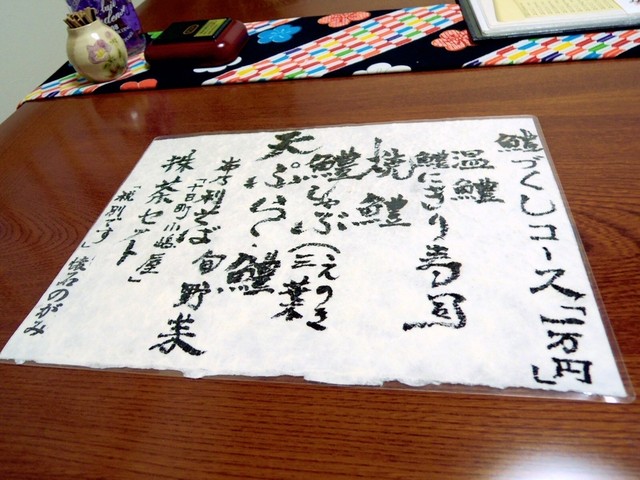 鱧づくしコース「一万円」
温鱧
鱧にぎり寿司
焼鱧
鱧しゃぶ(えのき
三葉
天ぷら〜鱧
旬野菜
弁子利そば
「十日町小嶋屋」
抹茶セット
「税別です」懐石のがみ